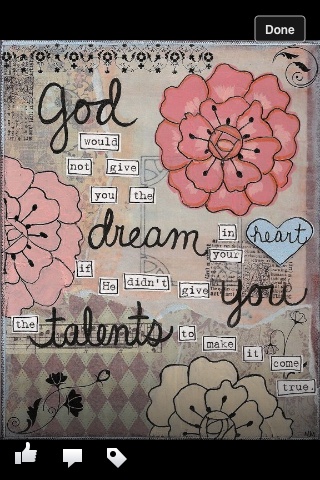 Done
God
would
not give
you the
dream in
your heart
if He didn't give you
the talents to
make it come
true.